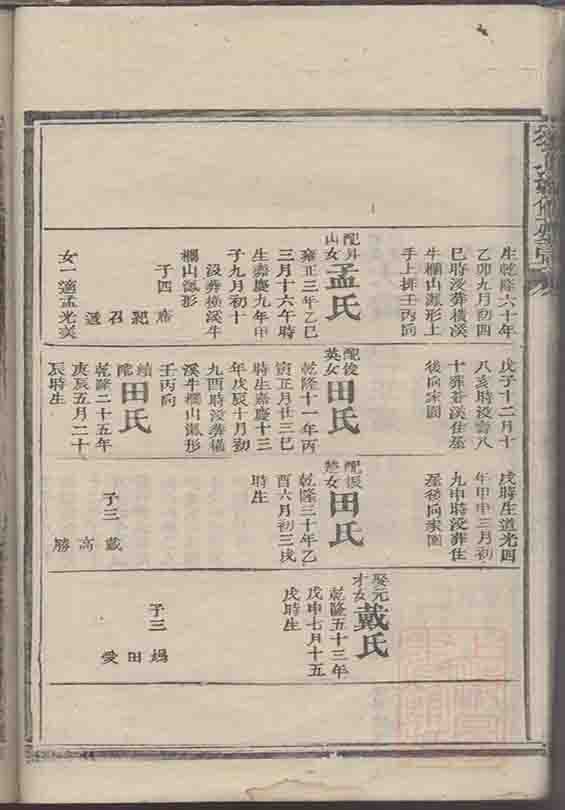 生乾隆六十年
乙卯九月初四
巳時没葬橫溪
牛欄山瀨形土
手上排壬丙向
配升
山女
孟氏
雍正三年乙巳
三月十六午時
生嘉慶九年甲
子九月初十
没葬橫溪牛
欄山瀨形
子四
召
女一適孟光美
戊子十二月十
八亥時没壽八
十葬苍溪住基
後向宋園
配俊
英女
田氏
乾隆十一年丙
寅正月廿三巳
時生嘉慶十三
年戊辰十月初
九酉時没葬橫
溪牛欄山瀨形
壬丙向
續
配
田氏
乾隆二十五年
庚辰五月二十
辰時生
戌時生道光四
年甲申三月初
九申時没葬住
基後向宋園
配振
楚女
田氏
乾隆三十年乙
酉六月初三戌
時生
子三
戴
高
勝
娶元
才女
戴氏
乾隆五十三年
戊申七月十五
戌時生
子三
田
愛